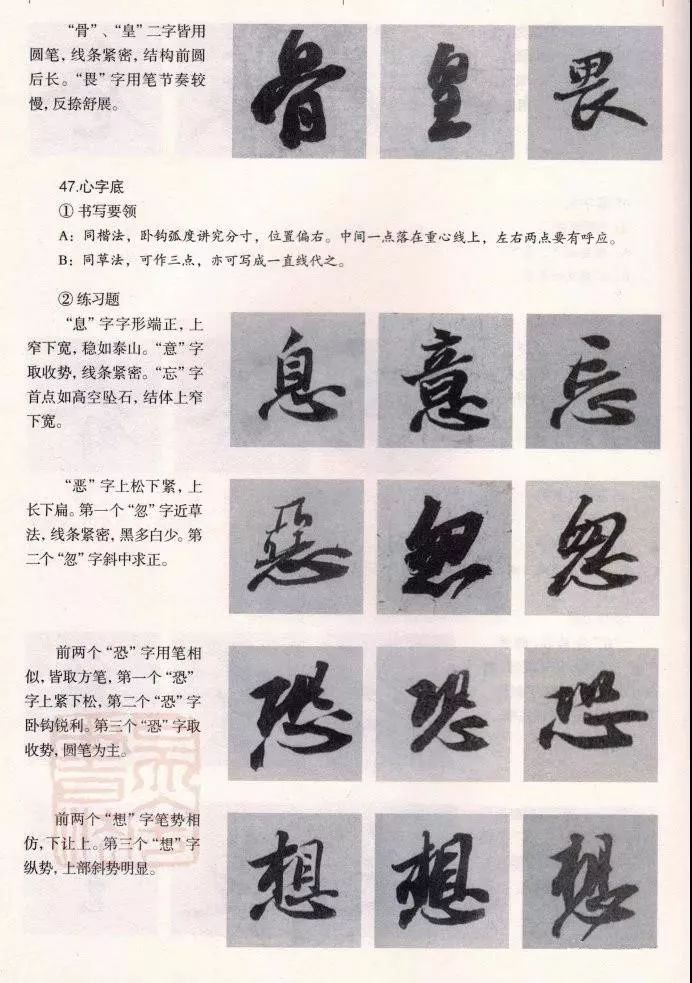 “骨”、“皇”二字皆用
圆笔，线条紧密，结构前圆
后长。“畏”字用笔节奏较
慢，反捺舒展。
骨 皇 畏
47.心字底
① 书写要领
A：同楷法，卧钩弧度讲究分寸，位置偏右。中间一点落在重心线上，左右两点要有呼应。
B：同草法，可作三点，亦可写成一直线代之。
② 练习题
“息”字字形端正，上
窄下宽，稳如泰山。“意”字
取收势，线条紧密。“忘”字
首点如高空坠石，结体上窄
下宽。
息 意 忘
“恶”字上松下紧，上
长下扁。第一个“忽”字近草
法，线条紧密，黑多白少。第
二个“忽”字斜中求正。
惡 忽 忽
前两个“恐”字用笔相
似，皆取方笔，第一个“恐”
字上紧下松，第二个“恐”字
卧钩锐利。第三个“恐”字取
收势，圆笔为主。
恐 恐 恐
前两个“想”字笔势相
仿，下让上。第三个“想”字
纵势，上部斜势明显。
想 想 想